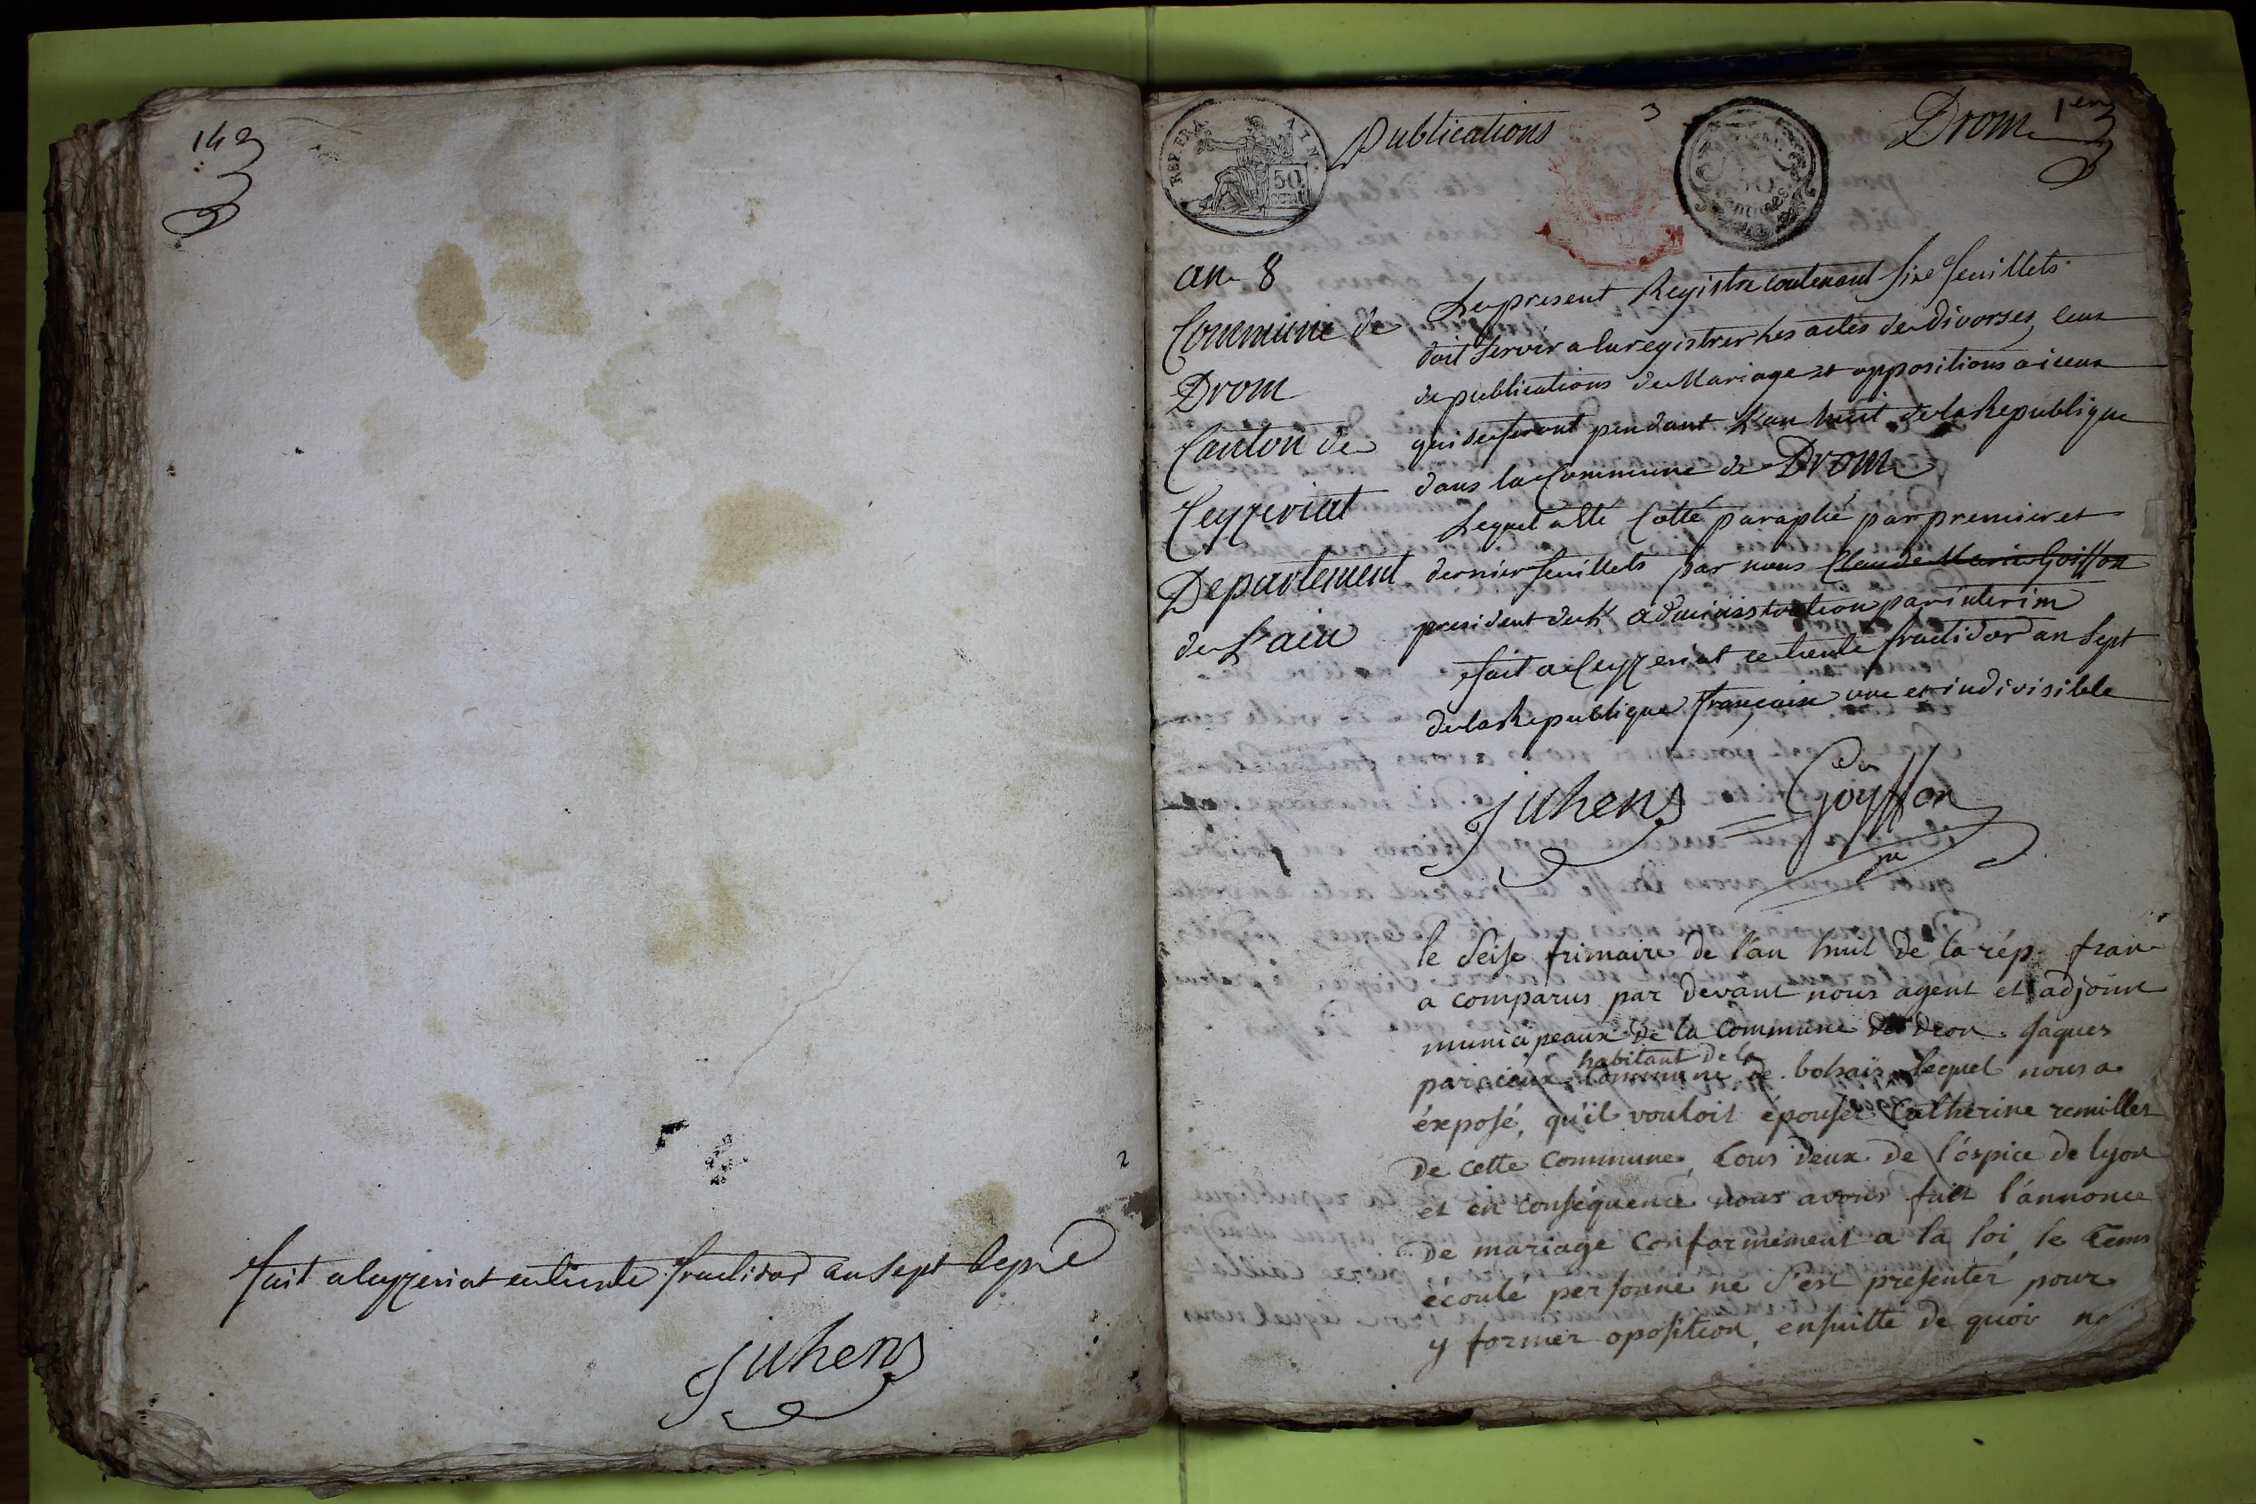 142
fait a Ceyzeriat ce trente fructidor an sept
juhens
2
REP. FRA.
50 CENT
Publications
3
Drom 1er
an 8
Commune de
Drom
Canton de
Ceyzeriat
Departement
de L'ain
Le present Registre contenant six feuillets
doit servir a enregistrer les actes de divorses, ceux
de publications de Mariage et oppositions a iceux
qui se feront pendant L'an huit de la Republique
dans la Commune de Drom
Lequel a été Cotté paraphé par premier et
dernier feuillets par nous Claude Marie Goiffon
president de L'administration par interim
fait a Ceyzeriat ce trente fructidor an sept
de la Republique française une et indivisible
juhens Goyffon
le Seise frimaire de l'an huit de la rép. fran
a comparus par devant nous agent et adjoint
municipeaux de la commune de dron jaques
habitant de la
parcieux Commune de bohas lequel nous a
éxposé, qu'il vouloit épouser Catherine remillet
De cette commune, tous deux de l'éspice de lyon
et en conséquence nous avons fait l'annonce
De mariage conformément a la loi, le tems
écoulé personne ne s'est presenter pour
y former oposition, ensuitte de quoi